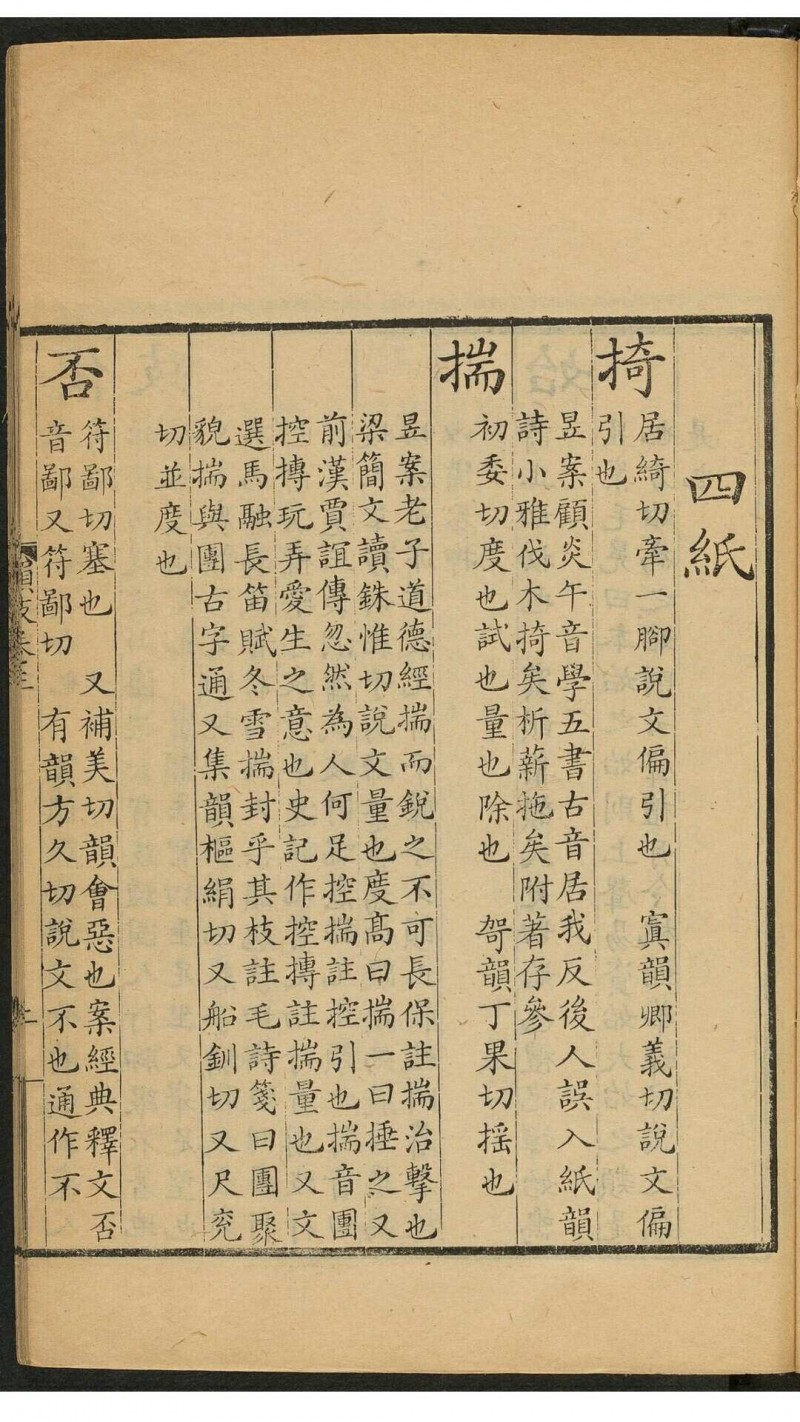 四紙
掎
居綺切牽一腳說文偏引也　寘韻卿義切說文偏
引也
昱案顧炎午音學五書古音居我反後人誤入紙韻
詩小雅伐木掎矣析薪拖矣附著存參
揣
初委切度也試也量也除也　哿韻丁果切揺也
昱案老子道德經揣而銳之不可長保註揣治擊也
梁簡文讀銖惟切說文量也度髙曰揣一曰捶之又
前漢賈誼傳忽然為人何足控揣註控引也揣音團
控摶玩弄愛生之意也史記作控摶註揣量也又文
選馬融長笛賦冬雪揣封乎其枝註毛詩箋曰團聚
貌揣與團古字通又集韻樞絹切又船釧切又尺兗
切並度也
否
符鄙切塞也　又補美切韻會惡也案經典釋文否
音鄙又符鄙切　有韻方久切說文不也通作不